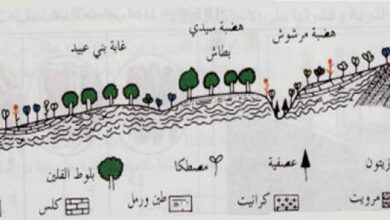 هضبة مرشوش
هضبة سيدي بطاش
غابة بني عبيد
زيتون
عصفية
مصطكا
بلوط الفلين
مرويت
كرانيت
طين ورمل
كلس